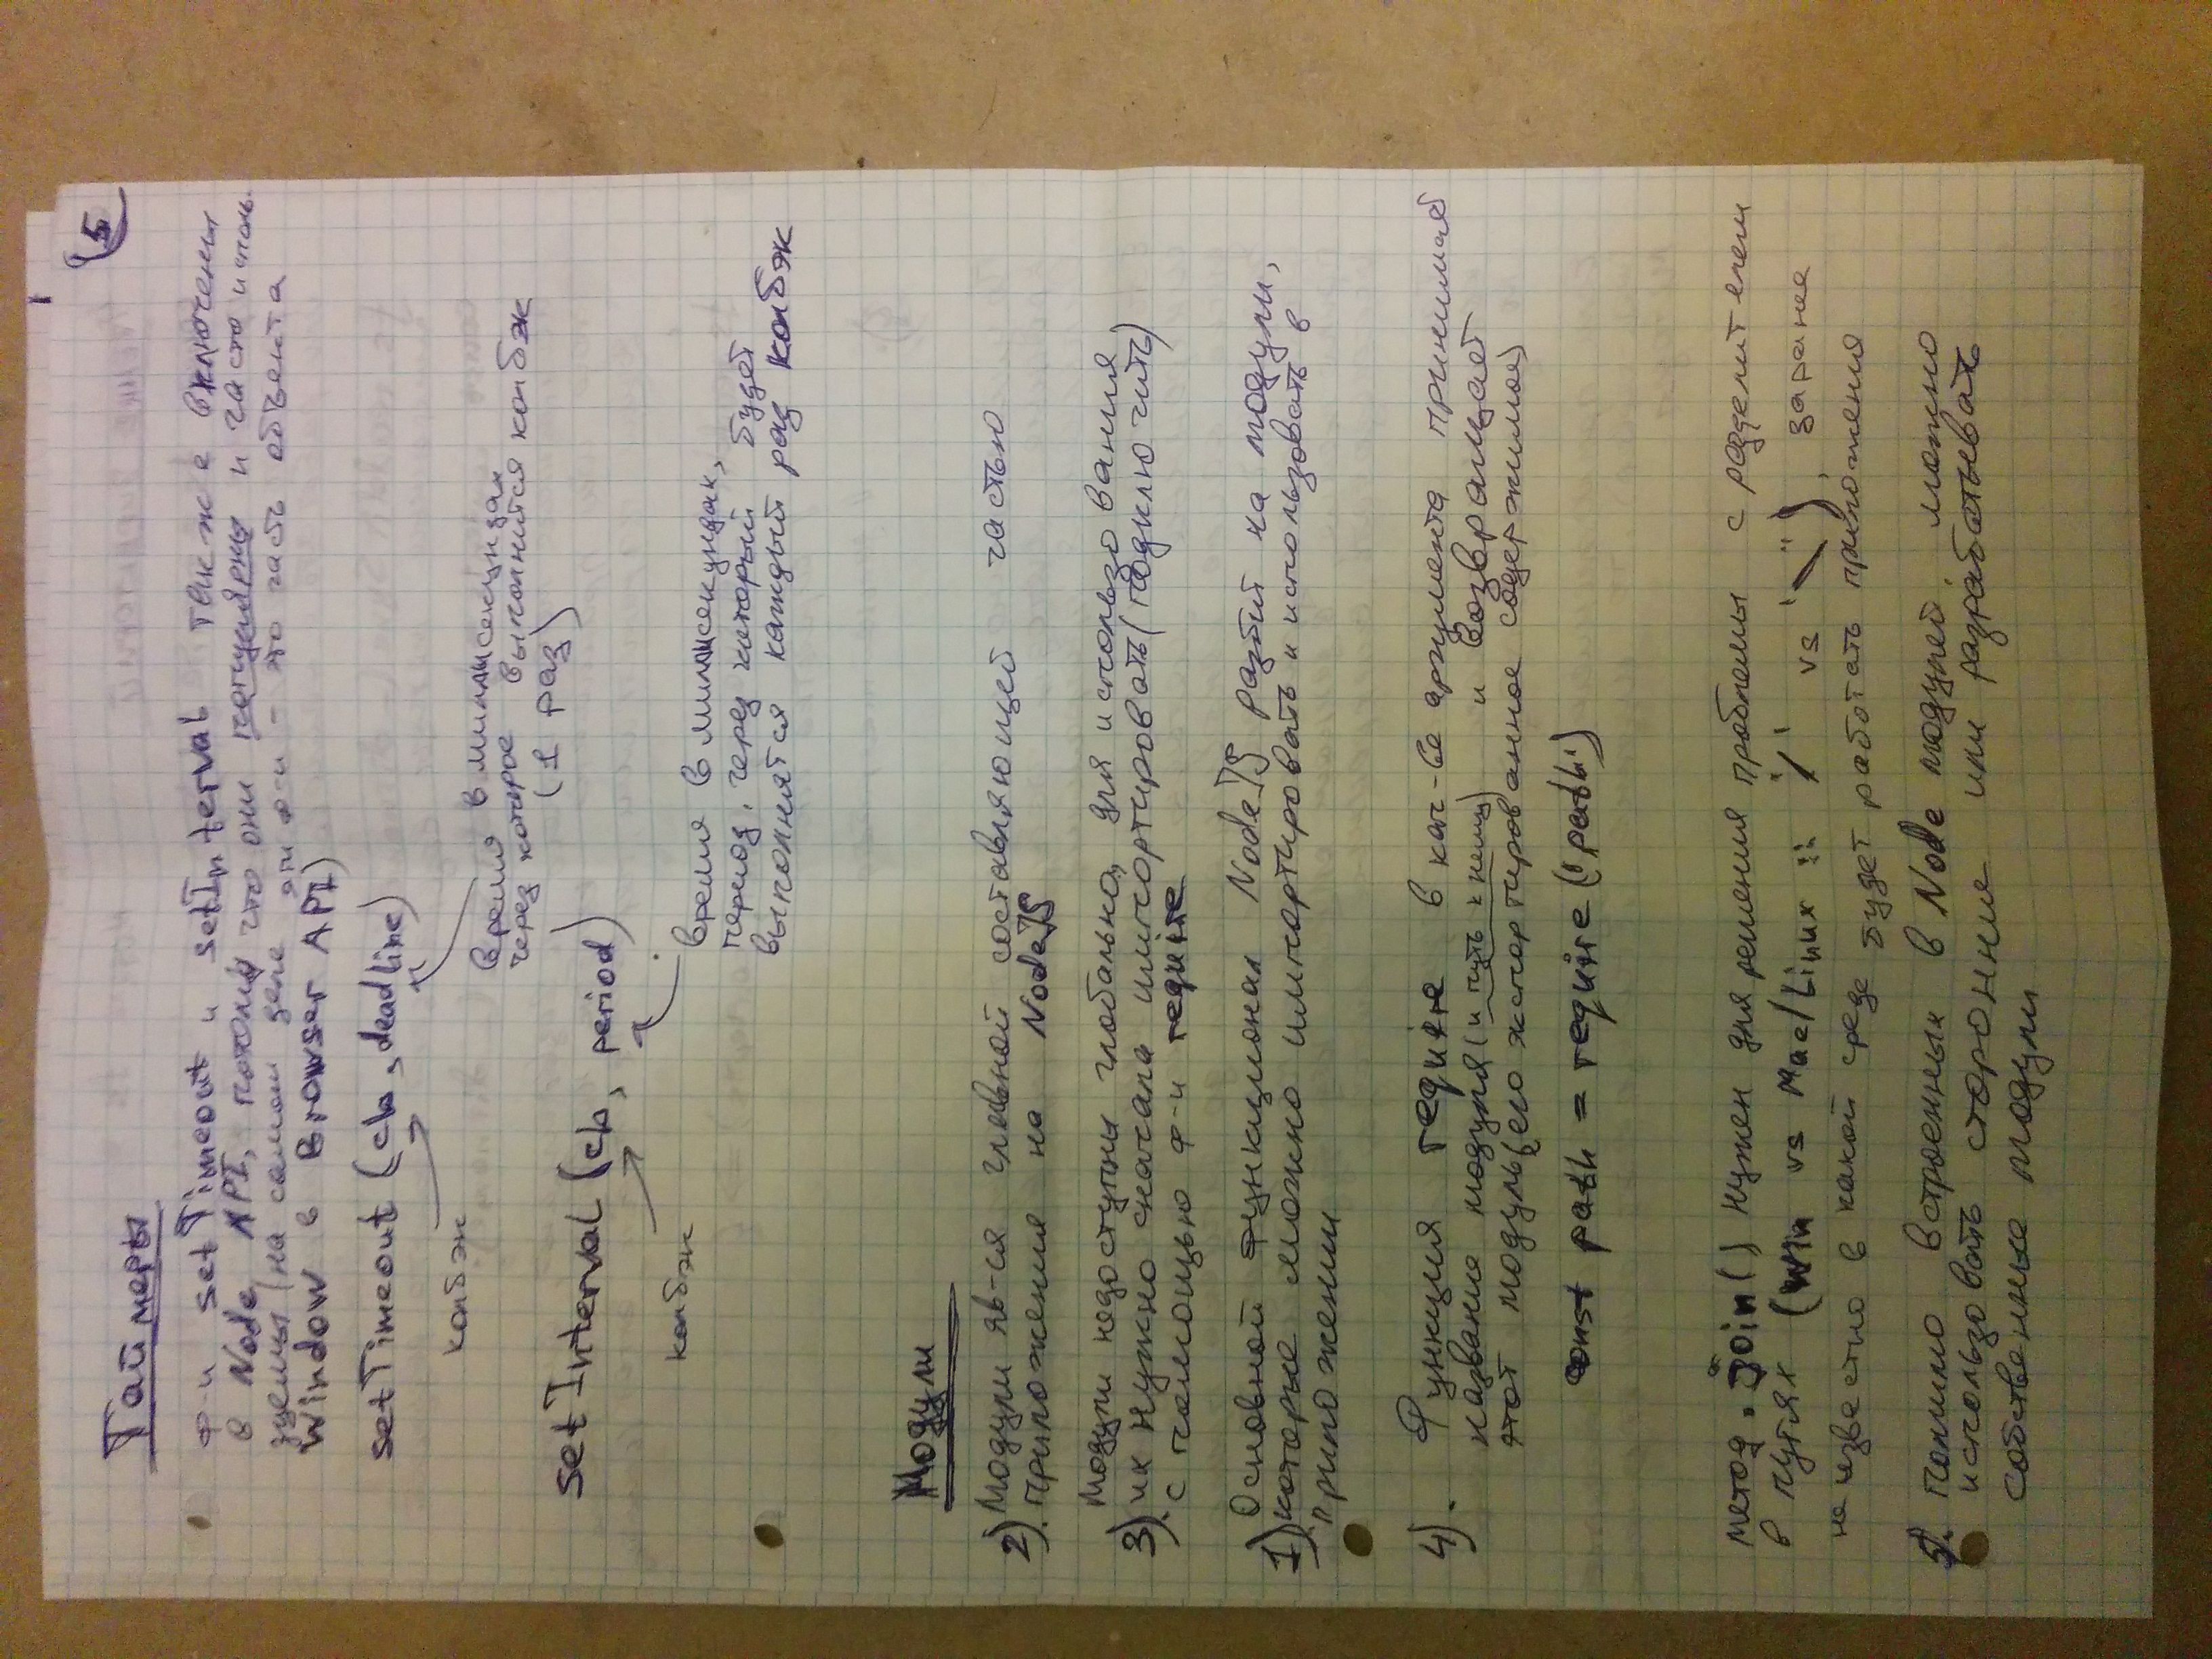 5
Таймеры
ф-и setTimeout и setInterval также включены
в Node API, потому что они популярны и часто исполь-
зуемы (на самом деле эти ф-и - это часть объекта
Window в Browser API)
setTimeout (cb, deadline)
колбэк
время в миллисекундах
через которое выполнится колбэк
(1 раз)
setInterval (cb, period)
колбэк
время в миллисекундах,
период, через который будет
выполнятся каждый раз колбэк
Модули
2). Модули яв-ся главной составляющей частью
приложения на NodeJS
Модули недоступны глобально, для использования
3). их нужно сначала импортировать (подключить)
с помощью ф-и require
Основной функционал NodeJS разбит на модули,
1) которые можно импортировать и использовать в
приложении
4). Функция require в кач-ве аргумента принимает
название модуля (и путь к нему) и возвращает
этот модуль (его экспортированное содержимое)
const path = require('path')
метод .join() нужен для решения проблемы с разделителем
в путях (Win vs Mac/Linux :: '/' vs '\'), заранее
неизвестно в какой среде будет работать приложения
5. помимо встроенных в Node модулей, можно
использовать сторонние или разрабатывать
собственные модули